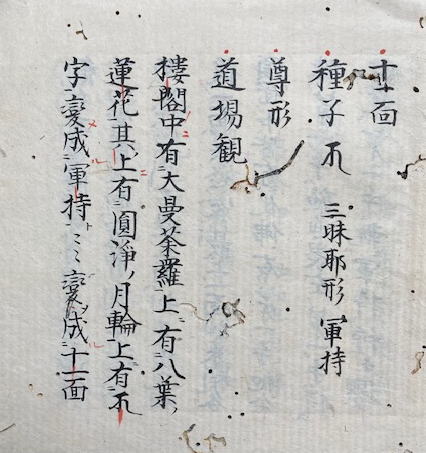 十一面
種子 三昧耶形 軍持
尊形
道場観
樓閣中有大曼荼羅上有八葉ノ
蓮花其上有圓淨ノ月輪上有
字變成軍持〻〻變成十一面